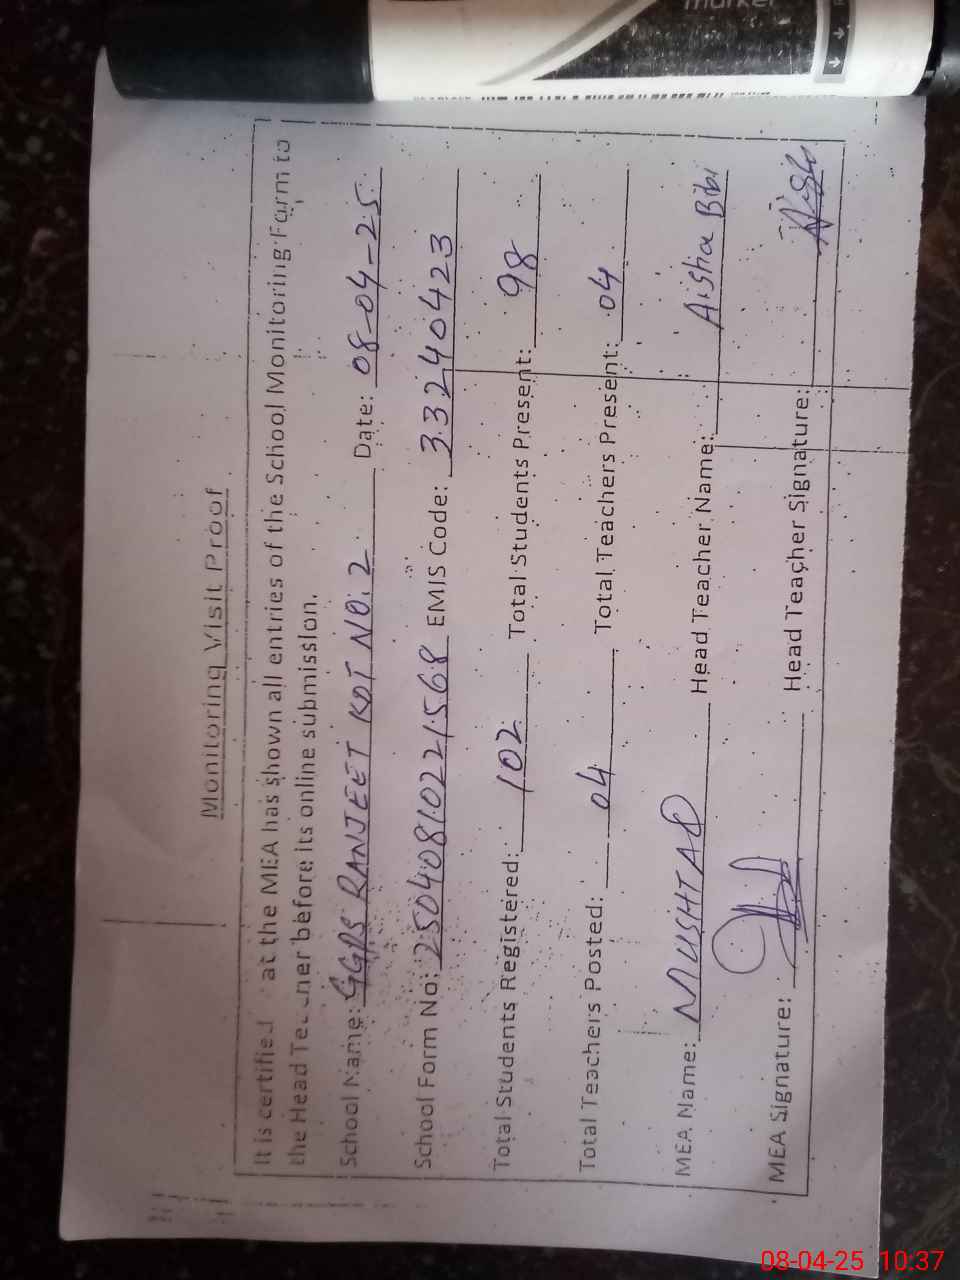 marker
Monitoring Visit Proof
It is certified at the MEA has shown all entries of the School Monitoring Form to
the Head Teacher before its online submission.
School Name: GGPS RANJEET KOT NO.2 Date: 08-04-25
School Form No: 25040810221568 EMIS Code: 33240423
Total Students Registered: 102 Total Students Present: 98
Total Teachers Posted: 04 Total Teachers Present: 04
MEA Name: MUSHTAQ Head Teacher Name: Aisha Bibi
MEA Signature: Head Teacher Signature:
08-04-25 10:37